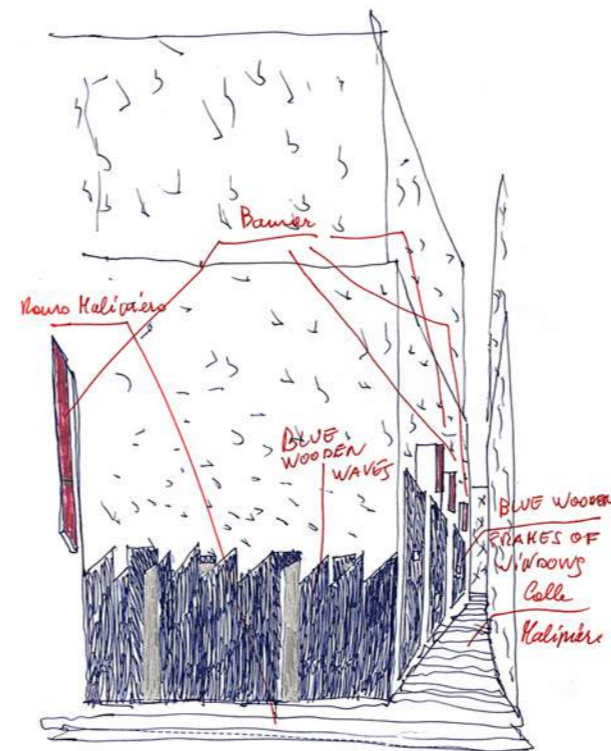 Banner
Ramo Malipiero
BLUE
WOODEN
WAVES
BLUE WOODEN
FRAMES OF
WINDOWS
Calle
Malipiero